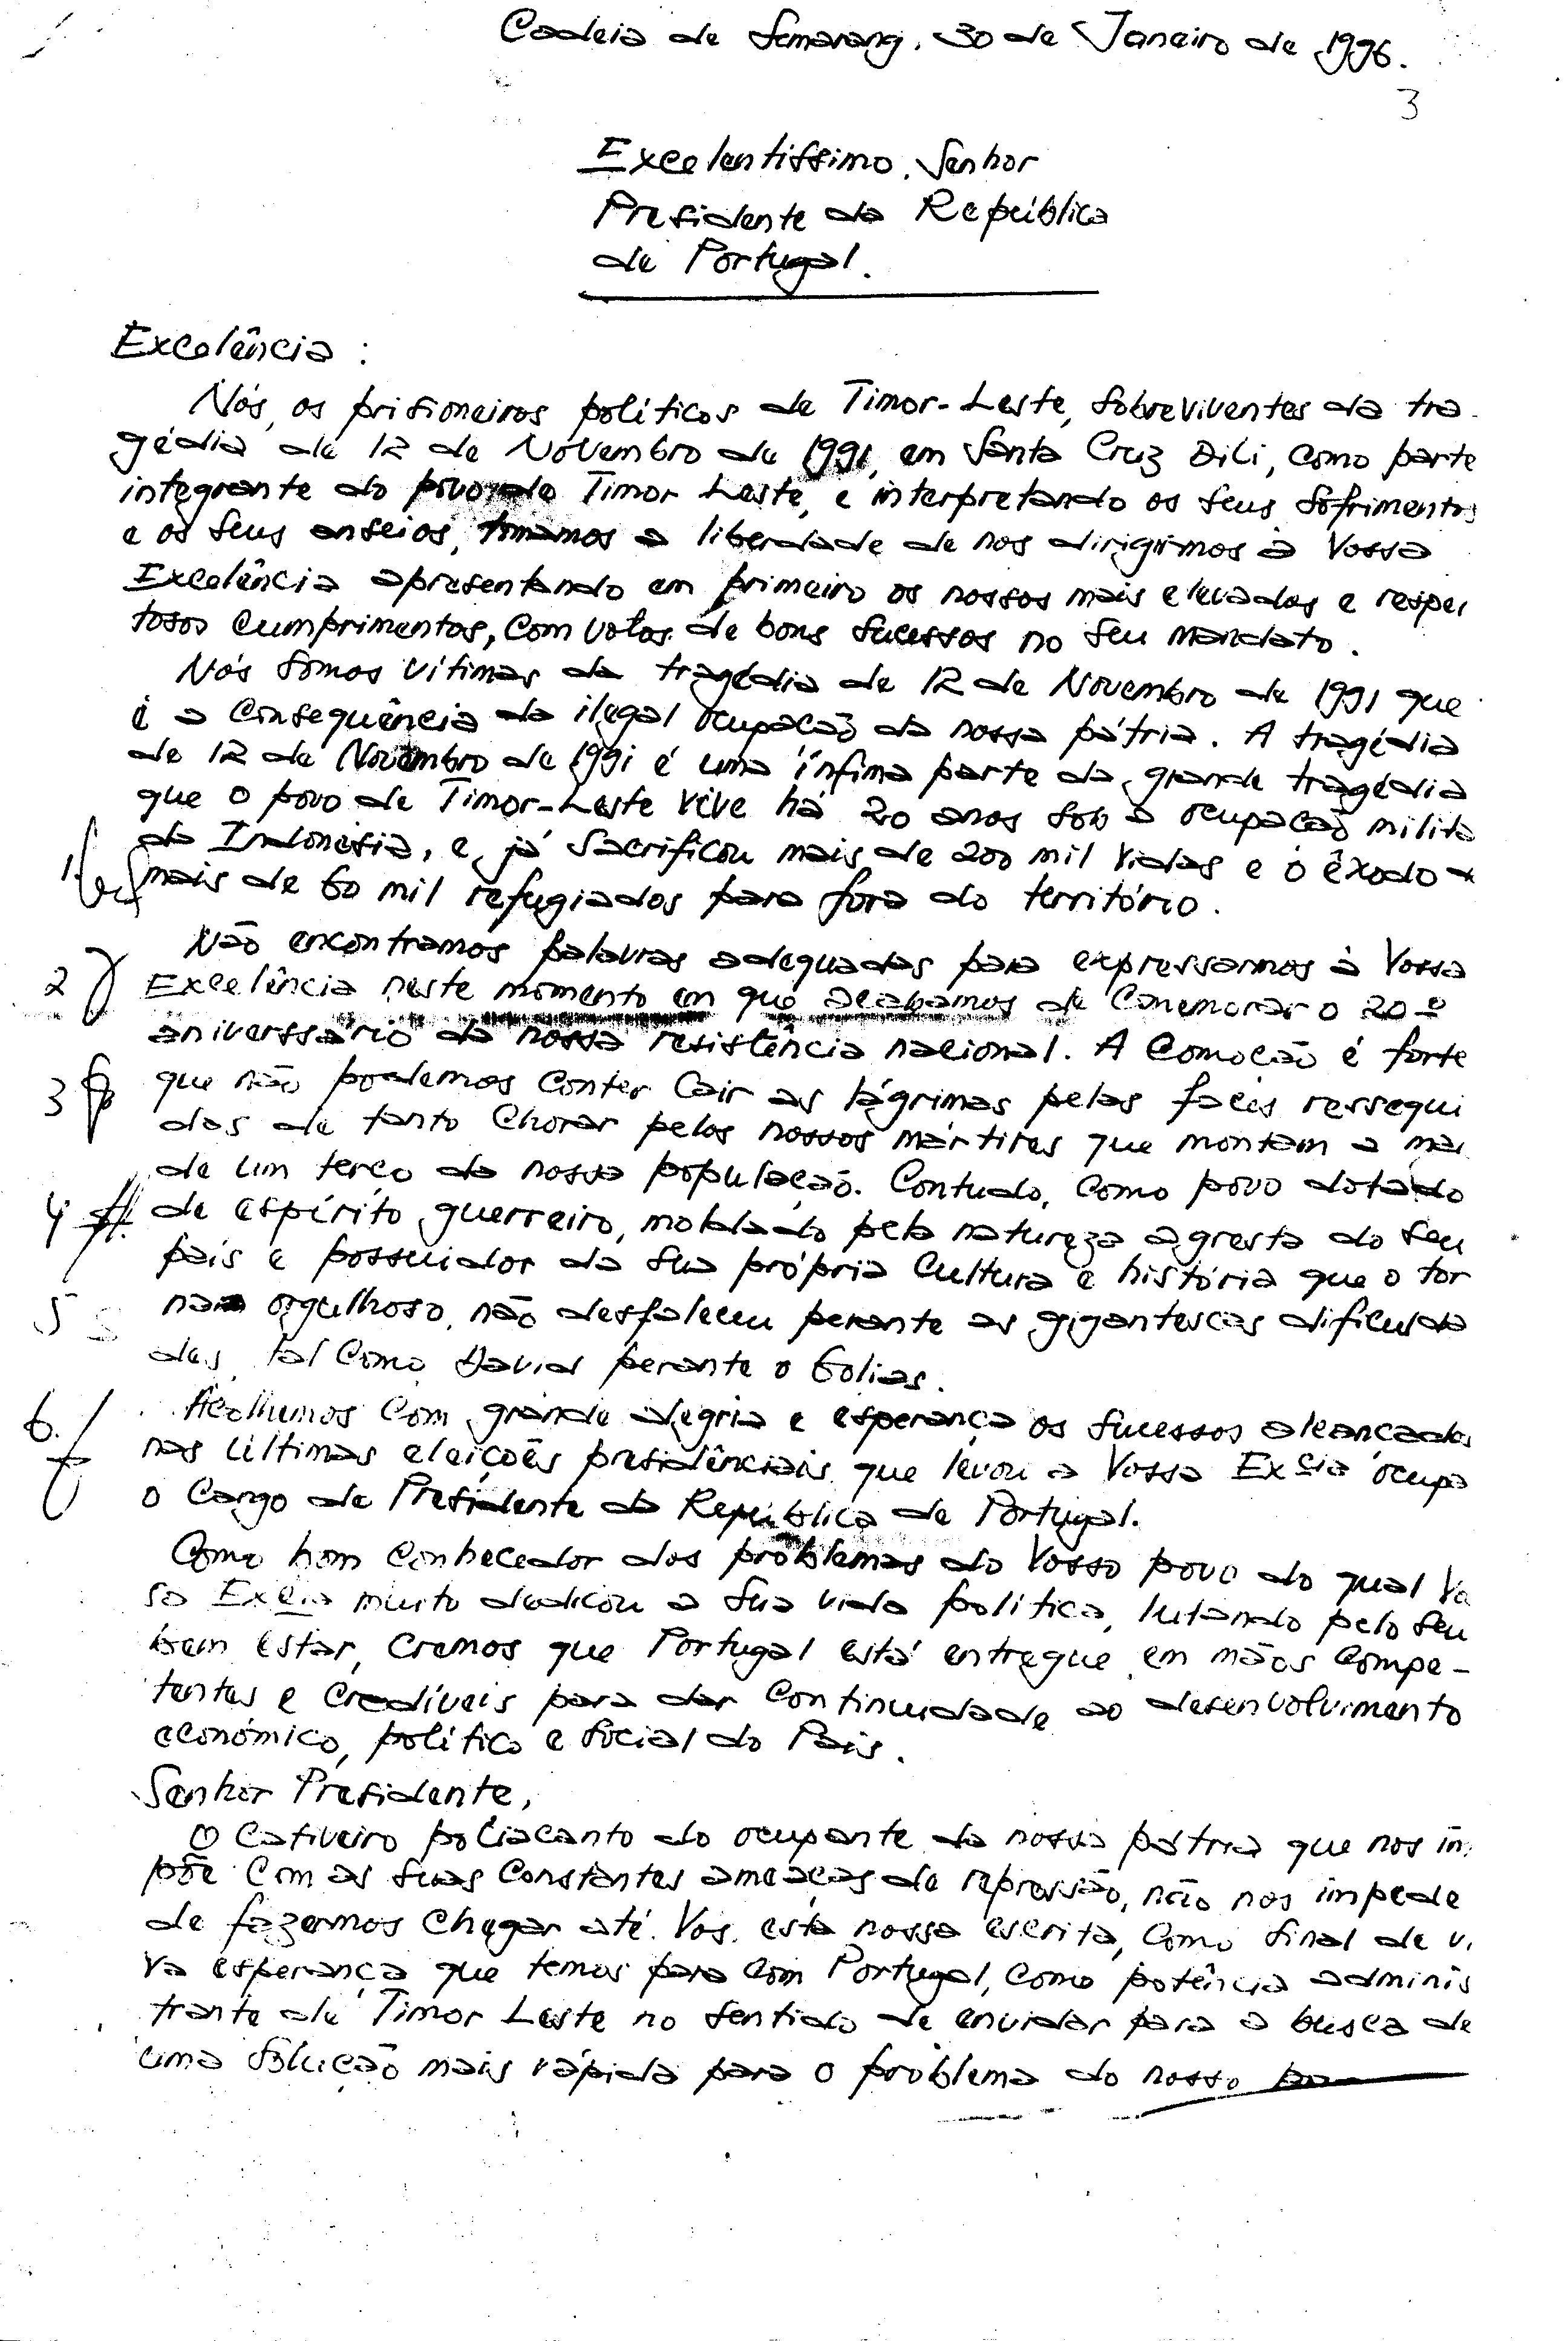 Cadeia de Semarang, 30 de Janeiro de 1996.
3
Excelentíssimo, Senhor
Presidente da República
de Portugal.
Excelência :
Nós, os prisioneiros políticos de Timor-Leste, sobreviventes da tra-
gédia de 12 de Novembro de 1991, em Santa Cruz Dili, como parte
integrante do povo de Timor Leste, e interpretando os seus sofrimentos
e os seus anseios, tomamos a liberdade de nos dirigirmos à Vossa
Excelência apresentando em primeiro os nossos mais elevados e respei
tosos cumprimentos, com votos de bons sucessos no seu mandato.
Nós somos vítimas da tragédia de 12 de Novembro de 1991 que
é a consequência da ilegal ocupação da nossa pátria. A tragédia
de 12 de Novembro de 1991 é uma ínfima parte da grande tragédia
que o povo de Timor-Leste vive há 20 anos sob a ocupação milita
da Indonésia, e já sacrificou mais de 200 mil vidas e o êxodo d
1. mais de 60 mil refugiados para fora do território.
Não encontramos palavras adequadas para expressarmos à Vossa
2 Excelência neste momento em que acabamos de comemorar o 20º
aniverssário da nossa resistência nacional. A comoção é forte
3 que não podemos conter cair as lágrimas pelas faces ressequi
das de tanto chorar pelos nossos mártires que montam a mai
de um terço da nossa população. Contudo, como povo dotado
4 de espírito guerreiro, moldado pela natureza agreste do seu
país e possuidor da sua própria cultura e história que o tor
5 nam orgulhoso, não desfaleceu perante as gigantescas dificulda
des, tal como David perante o Golias.
6. Acolhemos com grande alegria e esperança os sucessos alcançados
nas últimas eleições presidênciais que levou a Vossa Excia ocupa
o cargo de Presidente da República de Portugal.
Como bom conhecedor dos problemas do Vosso povo do qual Vo
sa Excia muito dedicou a sua vida política, lutando pelo seu
bem estar, cremos que Portugal está entregue em mãos compe-
tentes e credíveis para dar continuidade ao desenvolvimento
económico, político e social do País.
Senhor Presidente,
O cativeiro do ocupante da nossa pátria que nos im
põe com as suas constantes ameaças de repressão, não nos impede
de fazermos chegar até Vos, esta nossa escrita, como sinal de vi
va esperança que temos para com Portugal, como potência adminis
trante de Timor Leste no sentido de envidar para a busca de
uma solução mais rápida para o problema do nosso po